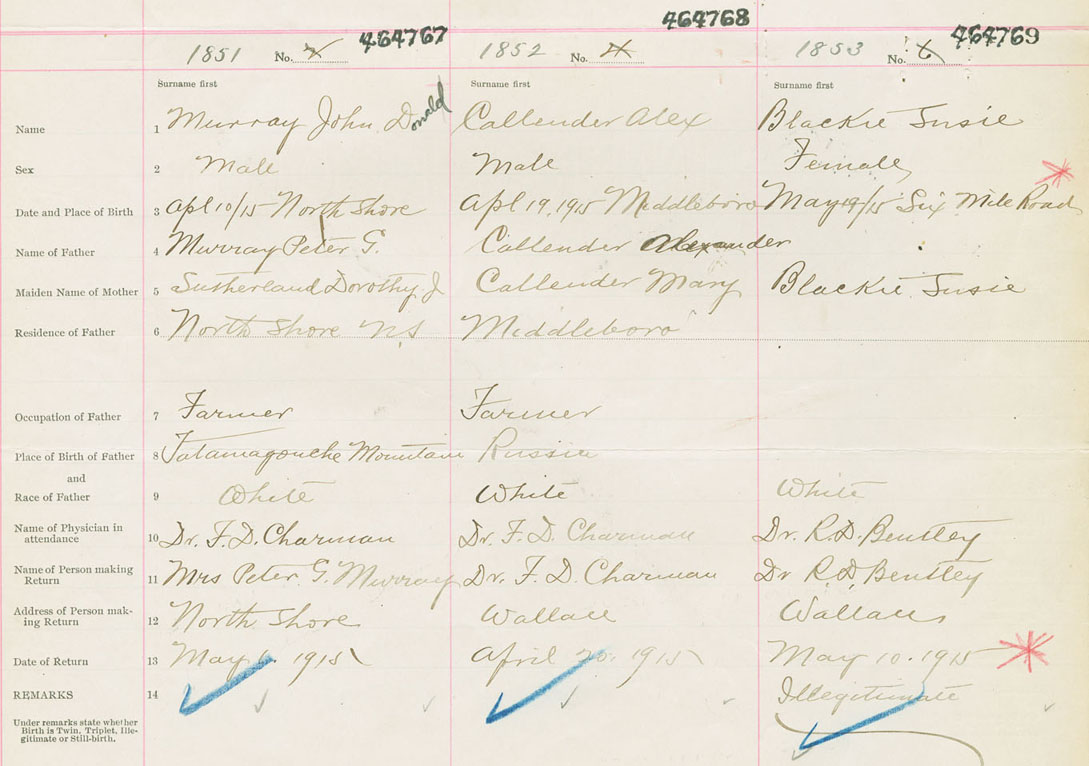 464767 464768 464769
1851 No. 1852 No. 4 1853 No. 6
Surname first Surname first Surname first
Name 1 Murray John Donald Callender Alex Blackie Susie
Sex 2 Male Male Female
Date and Place of Birth 3 Apl 10/15 North Shore Apl 19, 1915 Middleboro May /15 Six Mile Road
Name of Father 4 Murray Peter G. Callender Alexander
Maiden Name of Mother 5 Sutherland Dorothy J Callender Mary Blackie Susie
Residence of Father 6 North Shore N.S Middleboro
Occupation of Father 7 Farmer Farmer
Place of Birth of Father 8 Tatamagouche Mountain Russia
and
Race of Father 9 White White White
Name of Physician in
attendance 10 Dr. F. D. Charman Dr. F. D. Charman Dr. R. D. Bentley
Name of Person making
Return 11 Mrs Peter G. Murray Dr. F. D. Charman Dr R. D. Bentley
Address of Person mak-
ing Return 12 North Shore Wallace Wallace
Date of Return 13 May 1915 April 20. 1915 May 10. 1915
REMARKS 14 Illegitimate
Under remarks state whether
Birth is Twin, Triplet, Ille-
gitimate or Still-birth.